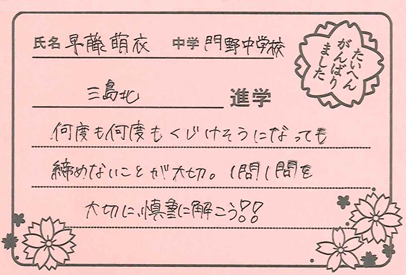 氏名 早藤萌衣 中学 門野中学校
たいへん
がんばり
ました
三島北 進学
何度も何度もくじけそうになっても
締めないことが大切。1問1問を
大切に、慎重に解こう!!